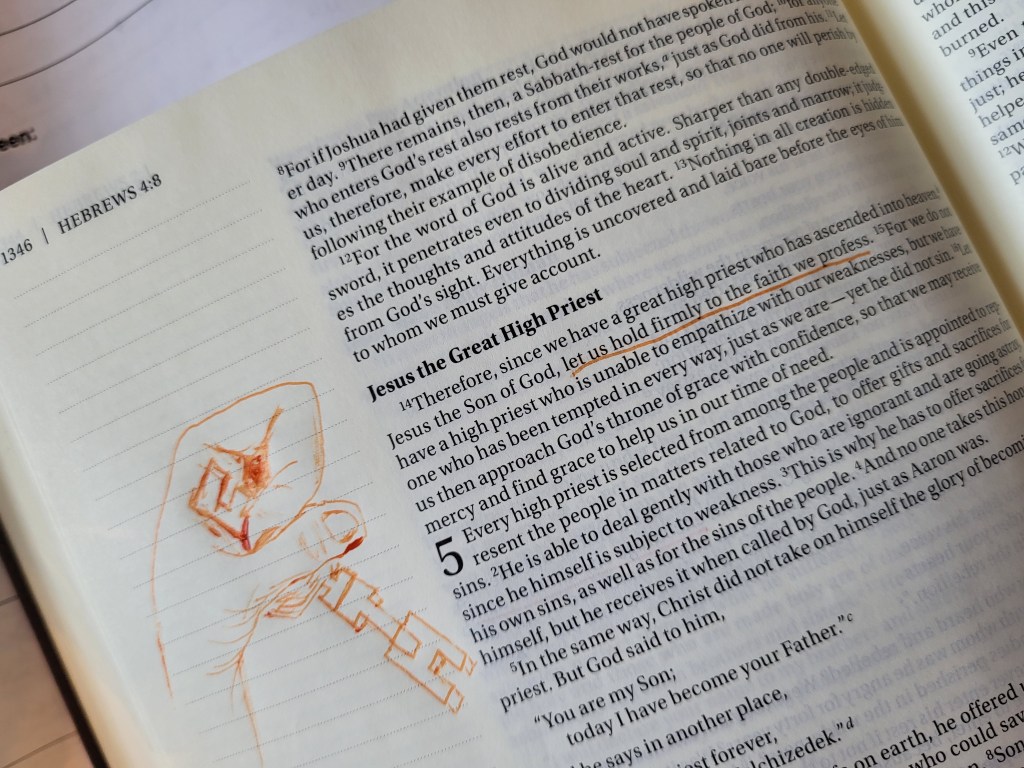 een:
1346 | HEBREWS 4:8
⁸For if Joshua had given them rest, God would not have spoken
er day. ⁹There remains, then, a Sabbath-rest for the people of God; ¹⁰for anyone
who enters God's rest also rests from their works,ᵃ just as God did from his. ¹¹Let
us, therefore, make every effort to enter that rest, so that no one will perish by
following their example of disobedience.
¹²For the word of God is alive and active. Sharper than any double-edged
sword, it penetrates even to dividing soul and spirit, joints and marrow; it judg-
es the thoughts and attitudes of the heart. ¹³Nothing in all creation is hidden
from God's sight. Everything is uncovered and laid bare before the eyes of him
to whom we must give account.
Jesus the Great High Priest
¹⁴Therefore, since we have a great high priest who has ascended into heaven,
Jesus the Son of God, let us hold firmly to the faith we profess. ¹⁵For we do not
have a high priest who is unable to empathize with our weaknesses, but we have
one who has been tempted in every way, just as we are—yet he did not sin. ¹⁶Let
us then approach God's throne of grace with confidence, so that we may receive
mercy and find grace to help us in our time of need.
5 Every high priest is selected from among the people and is appointed to rep-
resent the people in matters related to God, to offer gifts and sacrifices for
sins. ²He is able to deal gently with those who are ignorant and are going astray,
since he himself is subject to weakness. ³This is why he has to offer sacrifices
his own sins, as well as for the sins of the people. ⁴And no one takes this hon
himself, but he receives it when called by God, just as Aaron was.
⁵In the same way, Christ did not take on himself the glory of becomi
priest. But God said to him,
"You are my Son;
today I have become your Father."ᶜ
he says in another place,
iest forever,
lchizedek."ᵈ
on earth, he offered
who could sav
⁸Son
who
and this
burned.
⁹Even
things in
just; he
helpe
same
¹²W